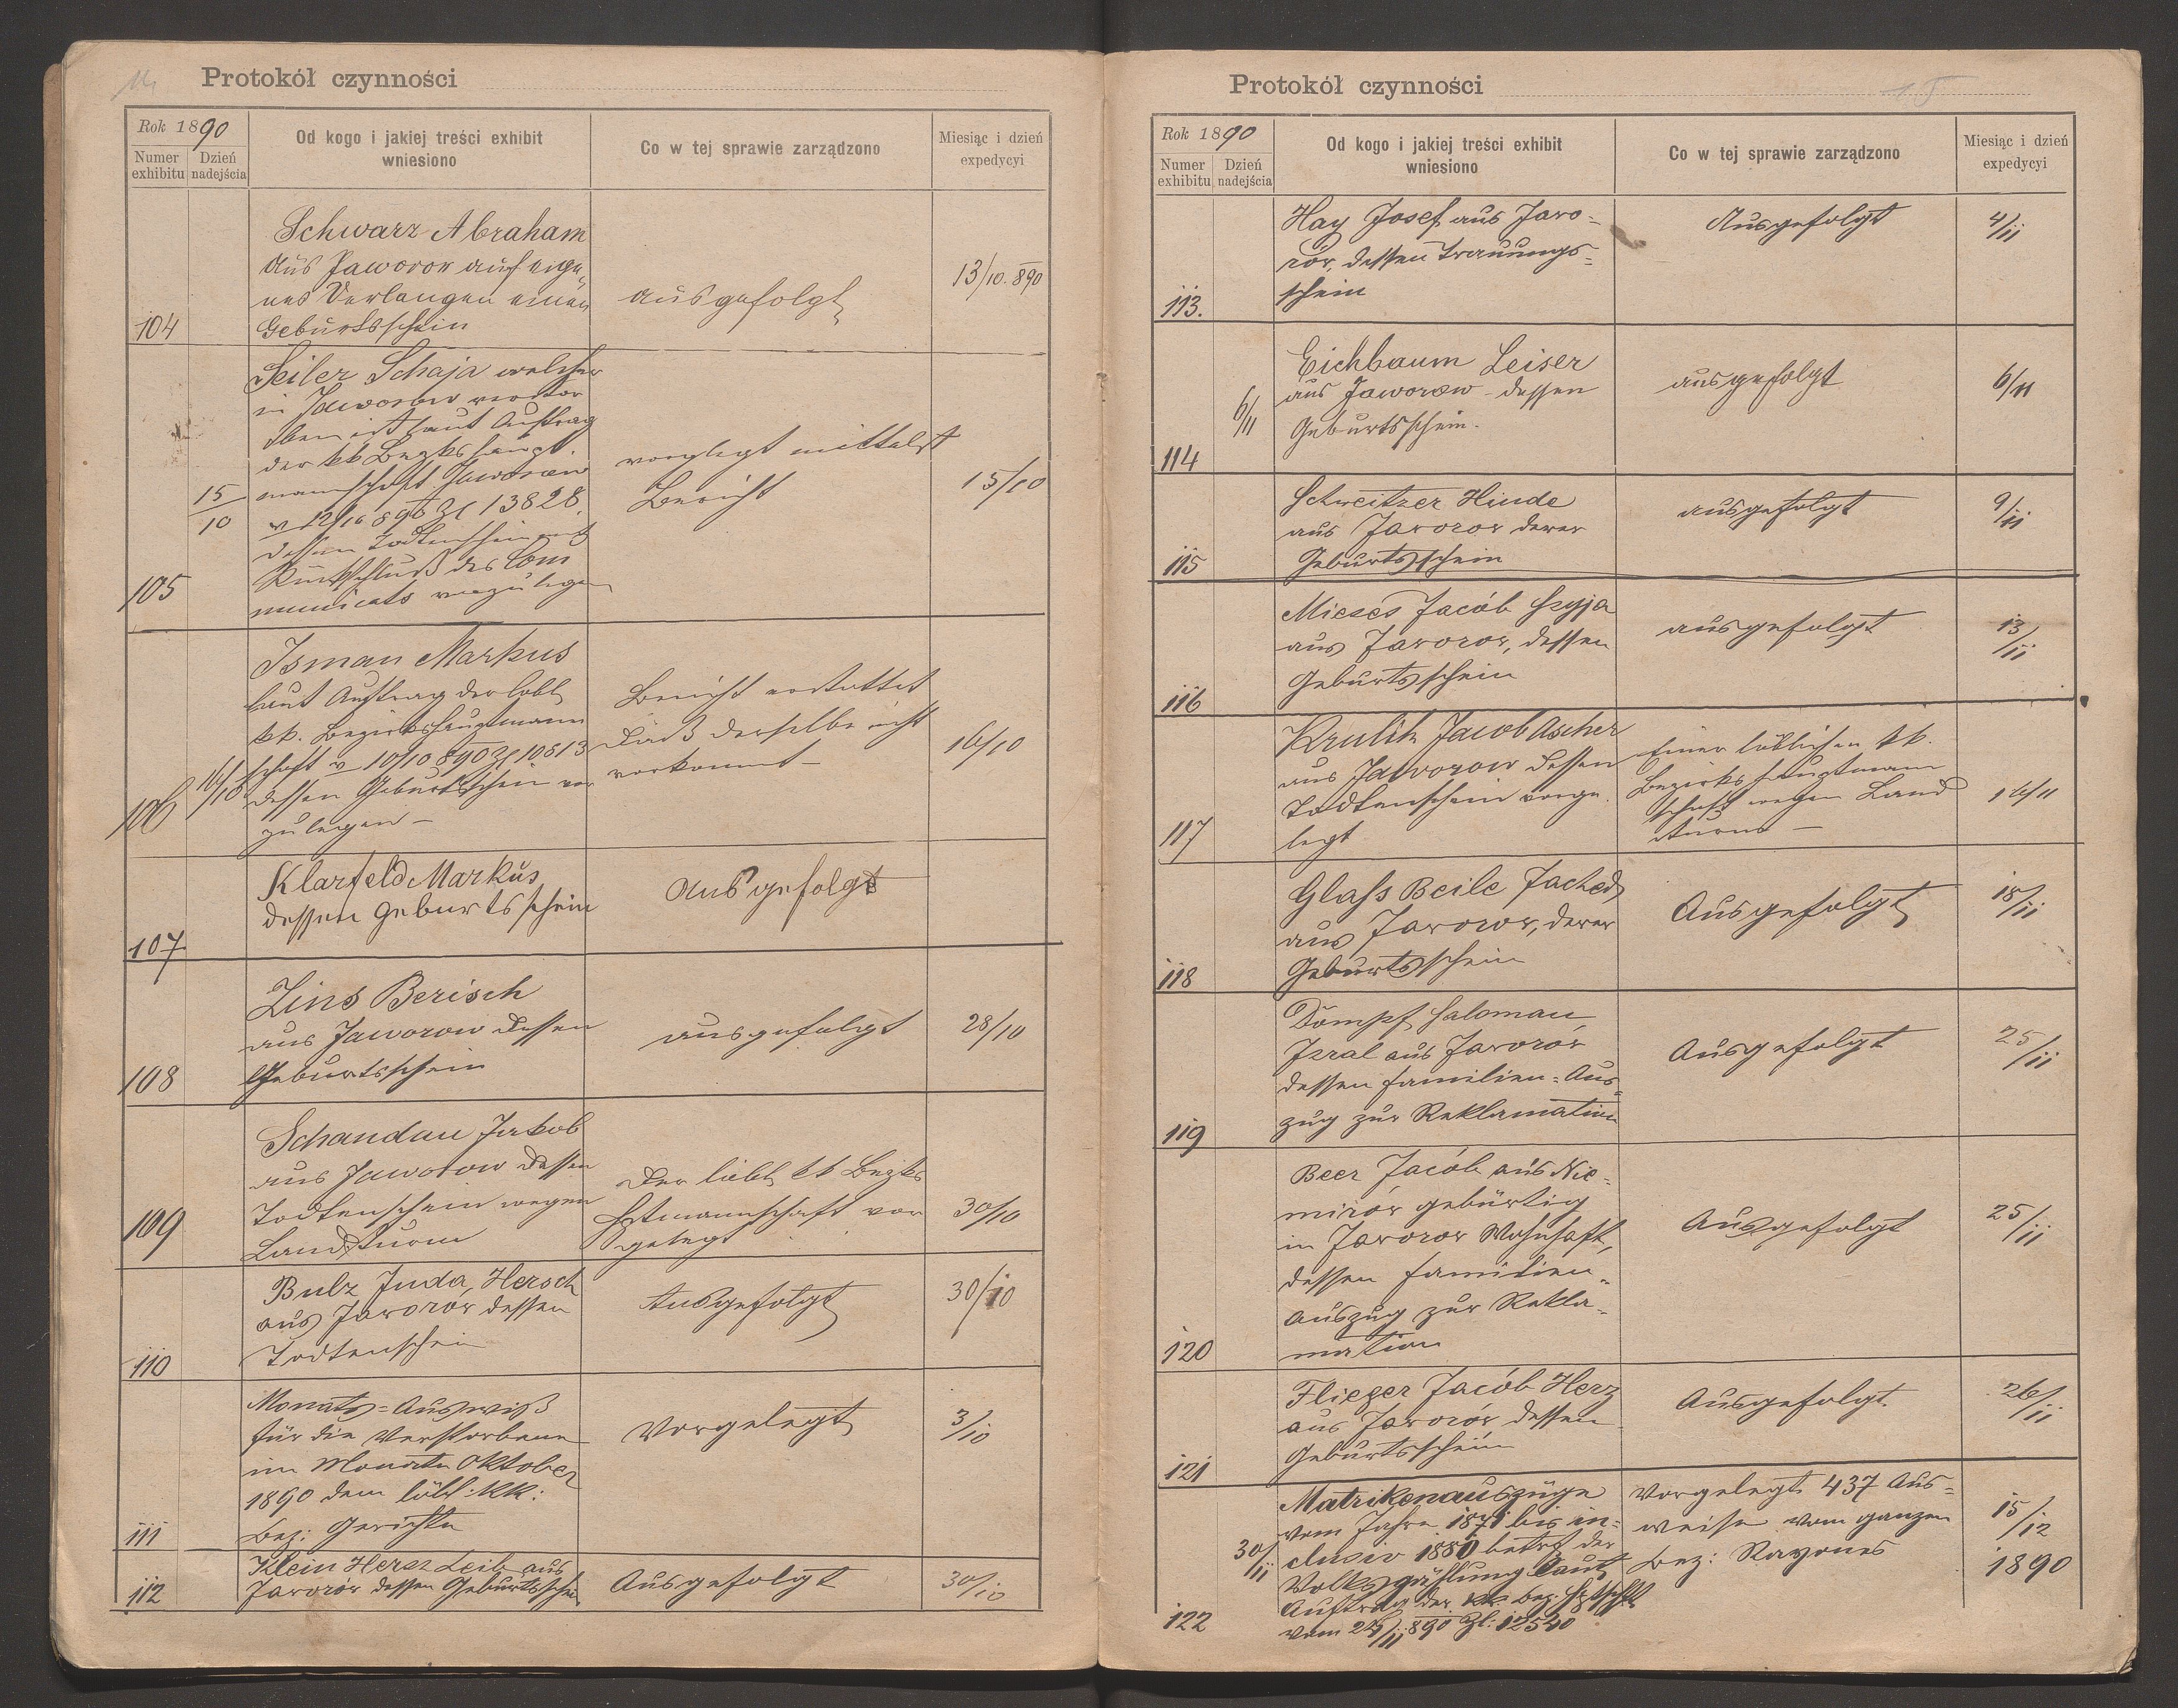 14
Protokół czynności
Rok 1890
Numer exhibitu
Dzień nadejścia
Od kogo i jakiej treści exhibit wniesiono
Co w tej sprawie zarządzono
Miesiąc i dzień expedycyi
Schwarz Abraham
aus Jaworow auf eige
nes Verlangen einen
Geburtsschein
104
ausgefolgt
13/10. 890
Seiler Schaja welcher
in Jaworow verstor
ben ist laut Auftrag
der kk Bezkshaupt
mannschaft Jaworow
v 12/10 890 Zl 13828
dessen Todtenschein mit
Rückschluß des Com
municats vorzulegen
105
15/10
vorglegt mittelst
Bericht
15/10
Isman Markus
laut Auftrag der löbl
kk. Bezirkshauptmann
schaft v 10/10 890 Zl 10513
dessen Geburtsschein vor
zulegen —
106
16/10
Bericht erstattet
daß derselbe nicht
vorkommt —
16/10
Klarfeld Markus
dessen Geburtsschein
107
ausgefolgt
Zins Berisch
aus Jaworow dessen
Geburtsschein
108
ausgefolgt
28/10
Schandau Jakob
aus Jaworow dessen
Todtenschein wegen
Landsturm
109
Der löbl kk Bezks
Hptmannschaft vor
gelegt
30/10
Bulz Juda, Hersch
aus Jaworów dessen
Todtenschein
110
Ausgefolgt
30/10
Monats=Ausweiß
für die Verstorbene
im Monate Oktober
1890 dem löbl: kk:
Bez: Gerichte
111
Vorgelegt
3/10
Klein Hersz Leib aus
Jaworów dessen Geburtsschein
112
Ausgefolgt
30/10
15
Protokół czynności
Rok 1890
Numer exhibitu
Dzień nadejścia
Od kogo i jakiej treści exhibit wniesiono
Co w tej sprawie zarządzono
Miesiąc i dzień expedycyi
Hay Josef aus Jawo=
rów, dessen Trauungs=
schein
113.
Ausgefolgt
4/11
Eichbaum Leiser
aus Jaworow dessen
Geburtsschein.
114
6/11
ausgefolgt
6/11
Schweitzer Hinde
aus Jaworow derer
Geburtsschein
115
ausgefolgt
9/11
Mieses Jacób Szyja
aus Jaworow, dessen
Geburtsschein
116
ausgefolgt
13/11
Krulik Jacob Ascher
aus Jaworow dessen
Todtenschein vorge
legt
117
Einer löblichen kk.
Bezirkshauptmann
schaft wegen Land
sturm —
14/11
Glass Beile Jached
aus Jaworow, derer
Geburtsschein
118
Ausgefolgt
18/11
Dompf Salomau
Izral aus Jaworów
dessen Familien=Aus=
zug zur Reklamation
119
Ausgefolgt
25/11
Beer Jacób aus Nie=
mirów gebürtig
in Jaworow Wohnhaft,
dessen Familien=
auszug zur Rekla=
mation
120
Ausgefolgt
25/11
Flieger Jacób Herz
aus Jaworów dessen
Geburtsschein
121
Ausgefolgt.
26/11
Matrikenauszüge
vom Jahre 1871 bis in=
clusiv 1880 betrf der
Volkszählung laut
Auftrag der kk. Bez. Hptschft
vom 24/11 890 Zl: 12540
122
30/11
Vorgelegt 437 Aus=
weise vom ganzen
Bez: Rayones
15/12
1890